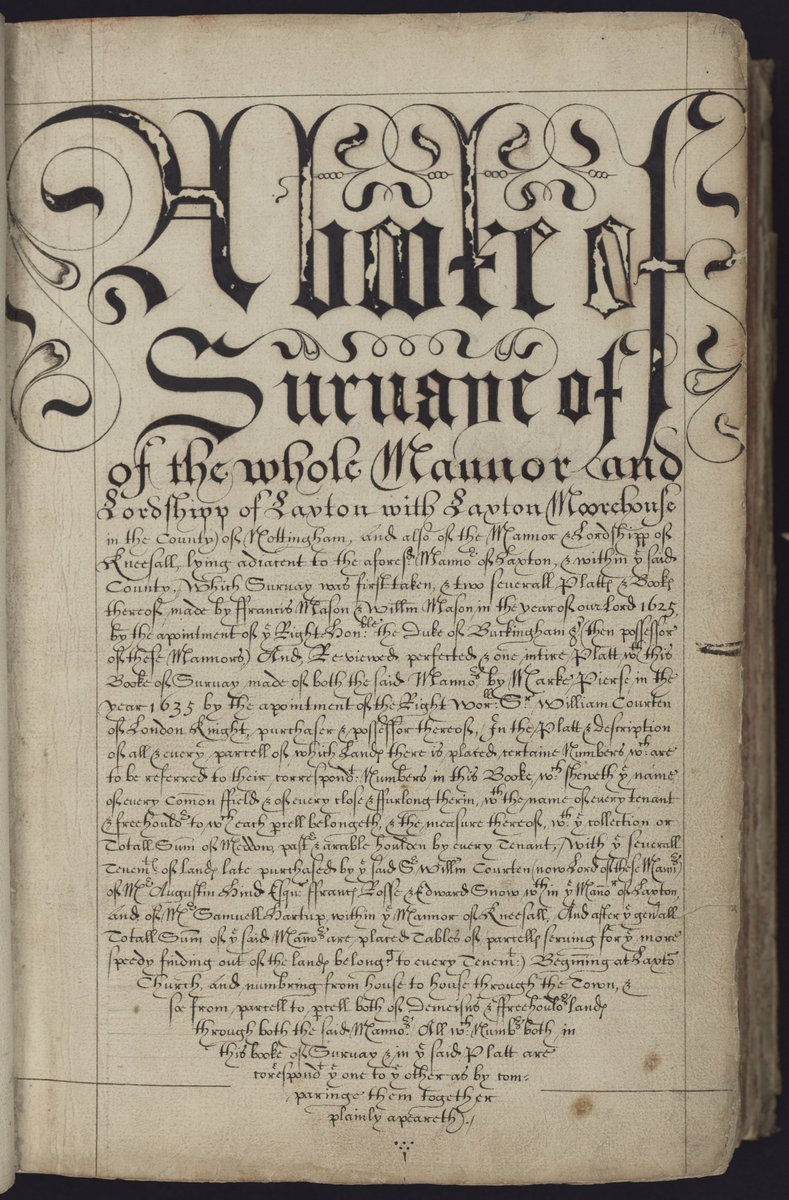 A booke of
Suruaye of
of the whole Mannor and
Lordshipp of Laxton with Laxton Moorehouse
in the County of Nottingham, and also of the Mannor & Lordshipp of
Kneesall, lying adiacent to the aforesd Manno:r of Laxton, & within ye said
County, Which Suruay was first taken, & two seuerall Platts & Bookes
thereof made by ffrancis Mason & Willm Mason in the year of our Lord 1625
by the apointment of ye Right Honble: the Duke of Buckingham &c (then possessor
of these Mannors) And Reviewed perfected & one intire Platt wth this
Booke of Suruay made of both the said Manno:rs by Marke Pierse in the
year 1635 by the apointment of the Right Worll: Sr William Courten
of London Knight, purchaser & possessor thereof, In the Platt & description
of all & every parcell of which Lands there is placed certaine Numbers wch: are
to be referred to their correspondt: Numbers in this Booke, wch sheweth ye name
of every Comon ffield & of every close & ffurlong therin, wth the name of every tenant
& freehould:r to wch each pcell belongeth, & the measure thereof, wth: ye collection or
Totall Sum of Meddow, past:r & arable houlden by every Tenant, With ye severall
Tenemts: of lands late purchased by ye said Sr Willm Courten (now Lord of these Mann:rs)
of Mr Augustin Hind Esqur: ffrancis Rosse & Edward Snow wth in ye Mano:r of Laxton,
and of Mr Samuell Hartup, within ye Mannor of Kneesall, And after ye genrall
Totall Sum of ye said Mano:rs are placed Tables of parcells serving for ye more
speedy finding out of the lands belong:g to every Tenemt:) Begining at Laxto
Church, and numbring from house to house through the Town, &
soe from parcell to pcell both of Demeisns & ffreehould:rs lands
through both the said Manno:rs All wch Numbrs both in
this booke of Suruay & in ye said Platt are
correspondt ye one to ye other as by com-
paringe them together
plainly apeareth.